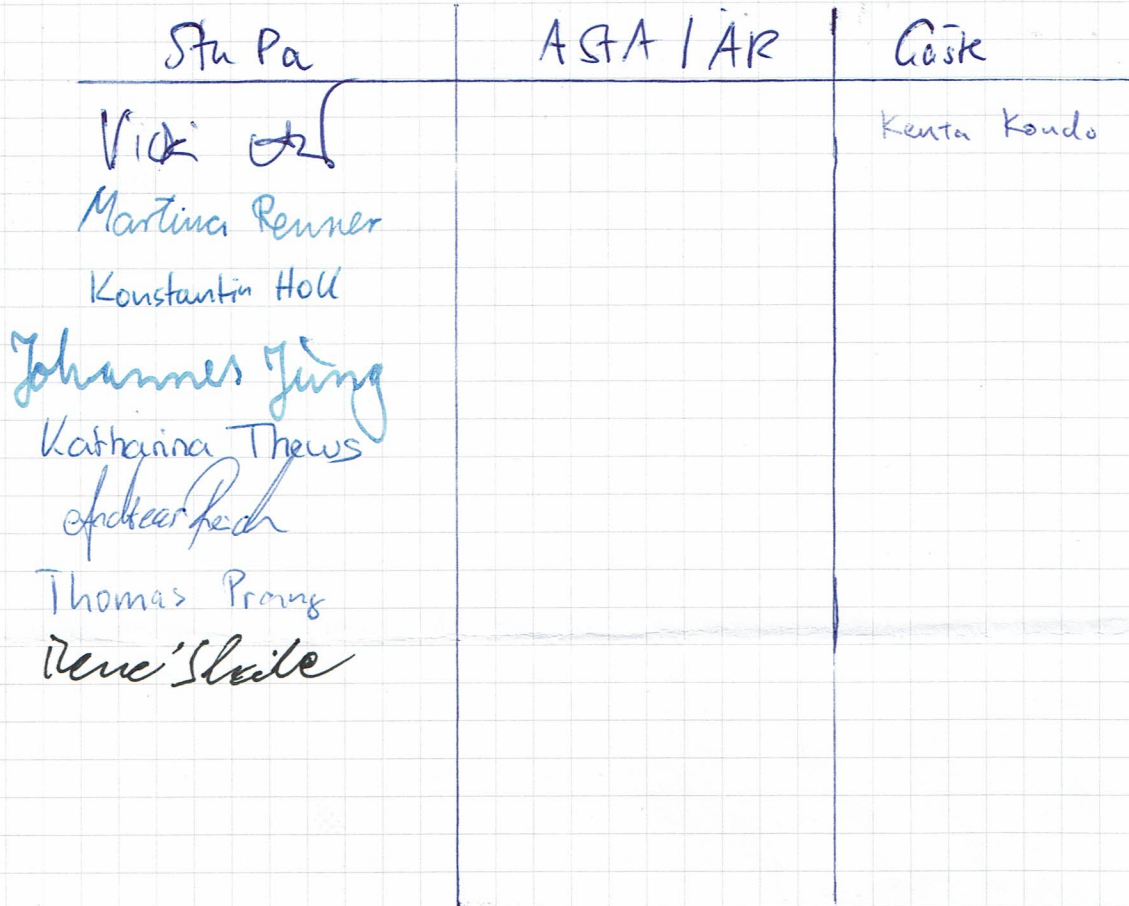 StuPa AStA / ÄR Gäste
Vicki
Kenta Kondo
Martina Renner
Konstantin Holl
Johannes Jüng
Katharina Thews
Andreas
Thomas Prang
René